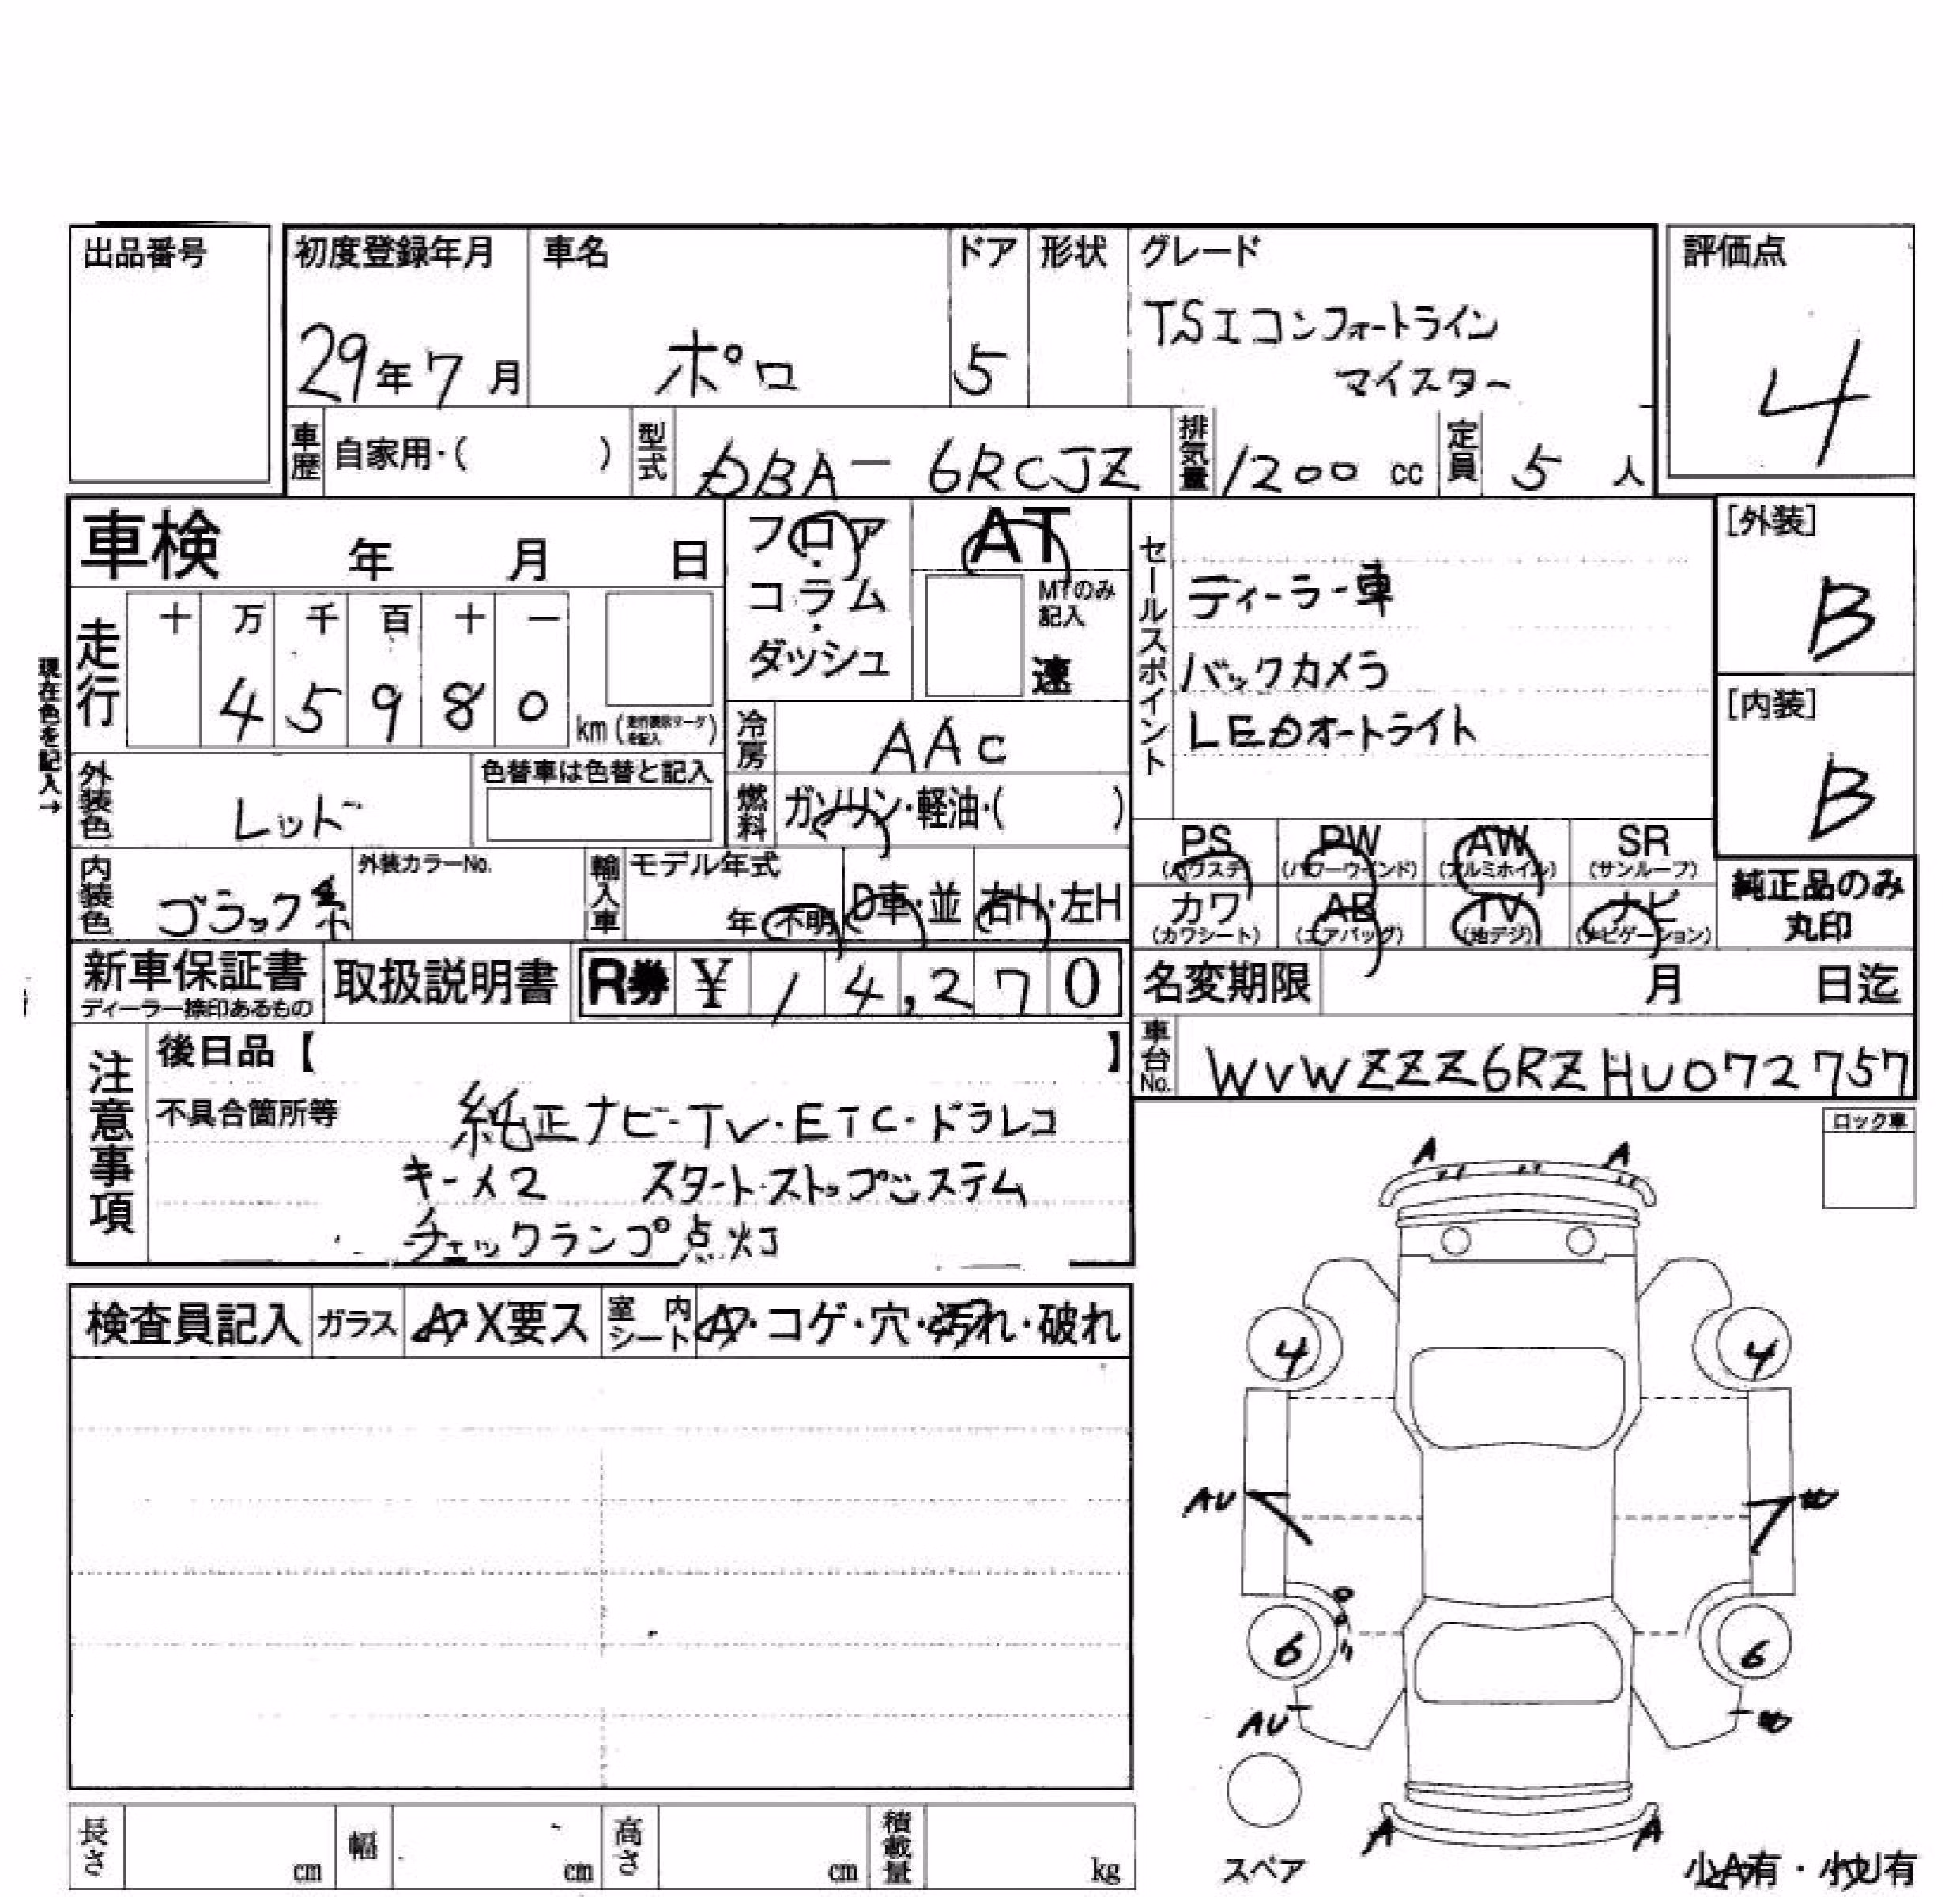 出品番号
初度登録年月 車名 ドア 形状 グレード 評価点
29年7月 ポロ 5 TSIコンフォートライン
マイスター
4
車歴 自家用・( ) 型式 DBA-6RCJZ 排気量 1200 cc 定員 5 人
車検 年 月 日
フロア・コラム・ダッシュ
AT
MTのみ記入
速
セールスポイント
ディーラー車
バックカメラ
LEDオートライト
[外装]
B
[内装]
B
現在色を記入→
走行 十 万 千 百 十 一
4 5 9 8 0 km (走行表示マークを記入)
冷房 AAC
燃料 ガソリン・軽油・( )
外装色 レッド 色替車は色替と記入
内装色 ブラック系 外装カラーNo. 輸入車 モデル年式 年 不明 D車・並 右H・左H
PS (パワステ) PW (パワーウインド) AW (アルミホイル) SR (サンルーフ)
カワ (カワシート) AB (エアバッグ) TV (地デジ) ナビ (ナビゲーション)
純正品のみ
丸印
新車保証書
ディーラー捺印あるもの
取扱説明書 R券 ¥ 14,270
名変期限 月 日迄
車台No. WVWZZZ6RZHU072757
注意事項
後日品【 】
不具合箇所等 純正ナビ・TV・ETC・ドラレコ
キー×2 スタートストップシステム
チェックランプ点灯
ロック車
A A
検査員記入 ガラス A・X要ス 室内シート A・コゲ・穴・汚れ・破れ
4 4
AU
6 6
AU
スペア
A A
小A有・小U有
長さ cm 幅 cm 高さ cm 積載量 kg